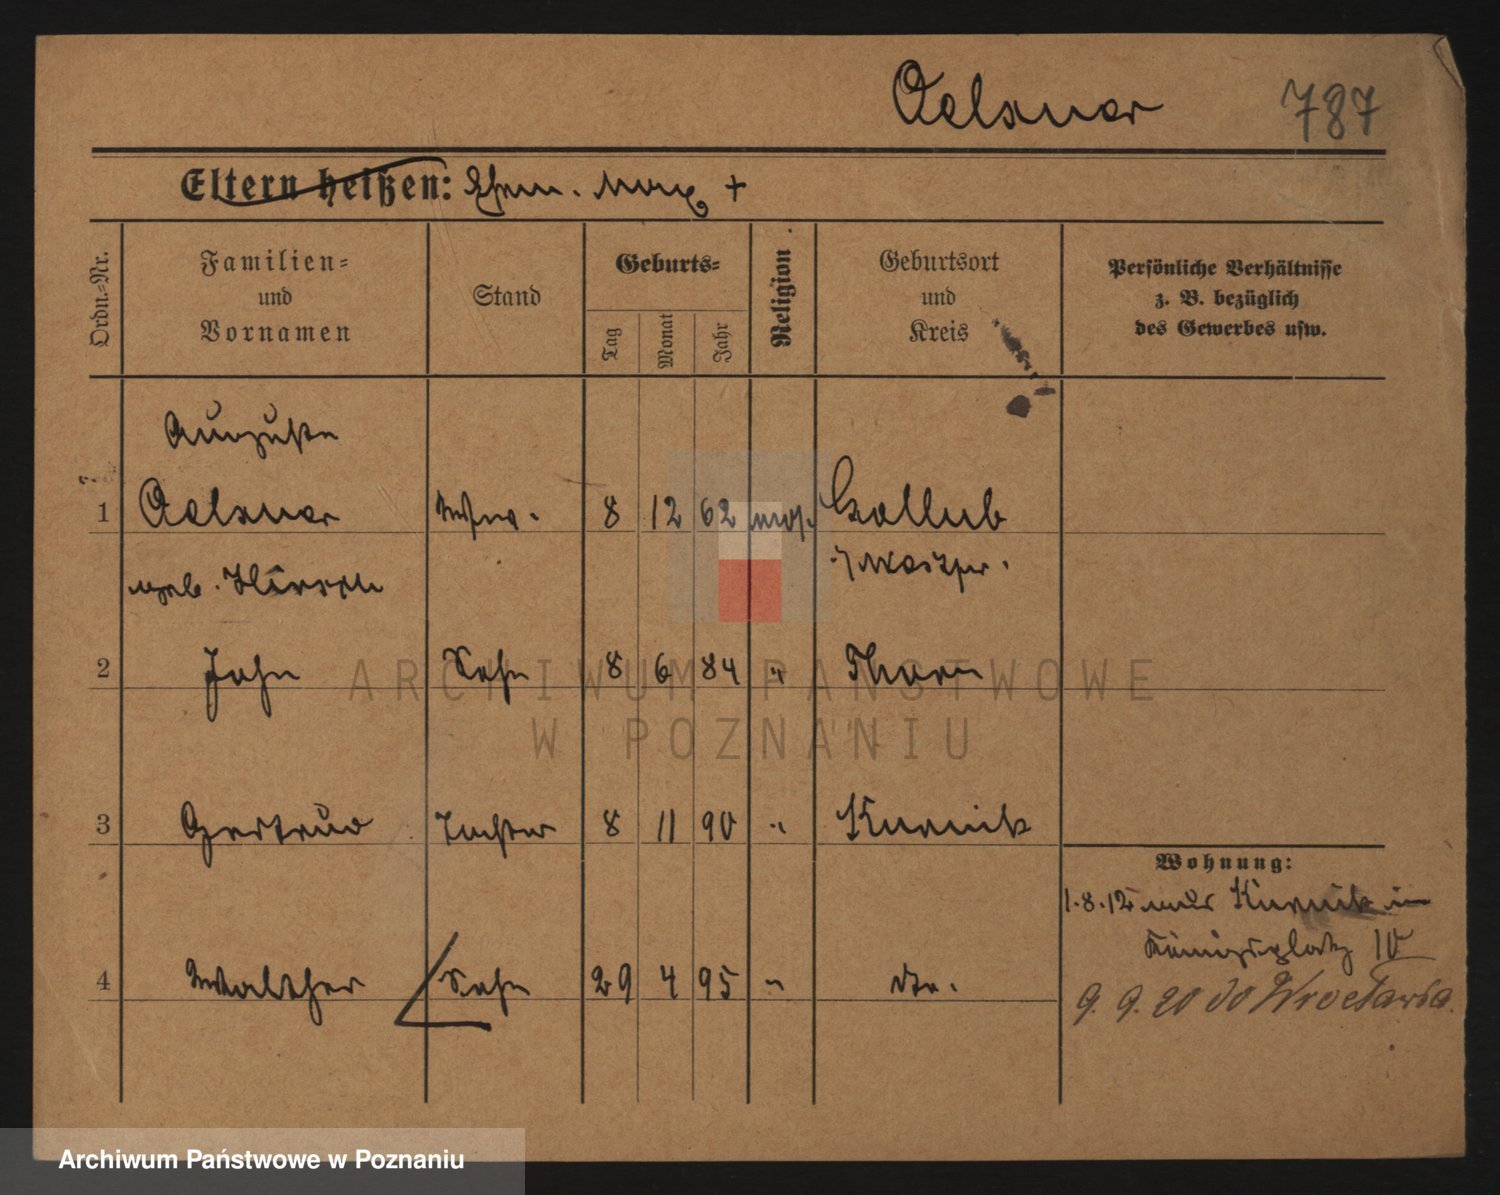 Oelsner 787
Eltern heißen: Ehem. Max +
Ordn.-Nr.
Familien-
und
Vornamen
Stand
Geburts-
Tag
Monat
Jahr
Religion
Geburtsort
und
Kreis
Persönliche Verhältnisse
z. B. bezüglich
des Gewerbes usw.
Auguste
1 Oelsner Wwe. 8 12 62 mos. Gollub
geb. Hirsch Westpr.
2 John Sohn 8 6 84 " Thorn
3 Gertrud Tochter 8 11 90 " Kurnik
Wohnung:
1.8.12 aus Kurnik in
Königsplatz 10
4 Walther Sohn 29 4 95 " do.
9. 9. 20 do Wrocławia.
ARCHIWUM PAŃSTWOWE
W POZNANIU
Archiwum Państwowe w Poznaniu